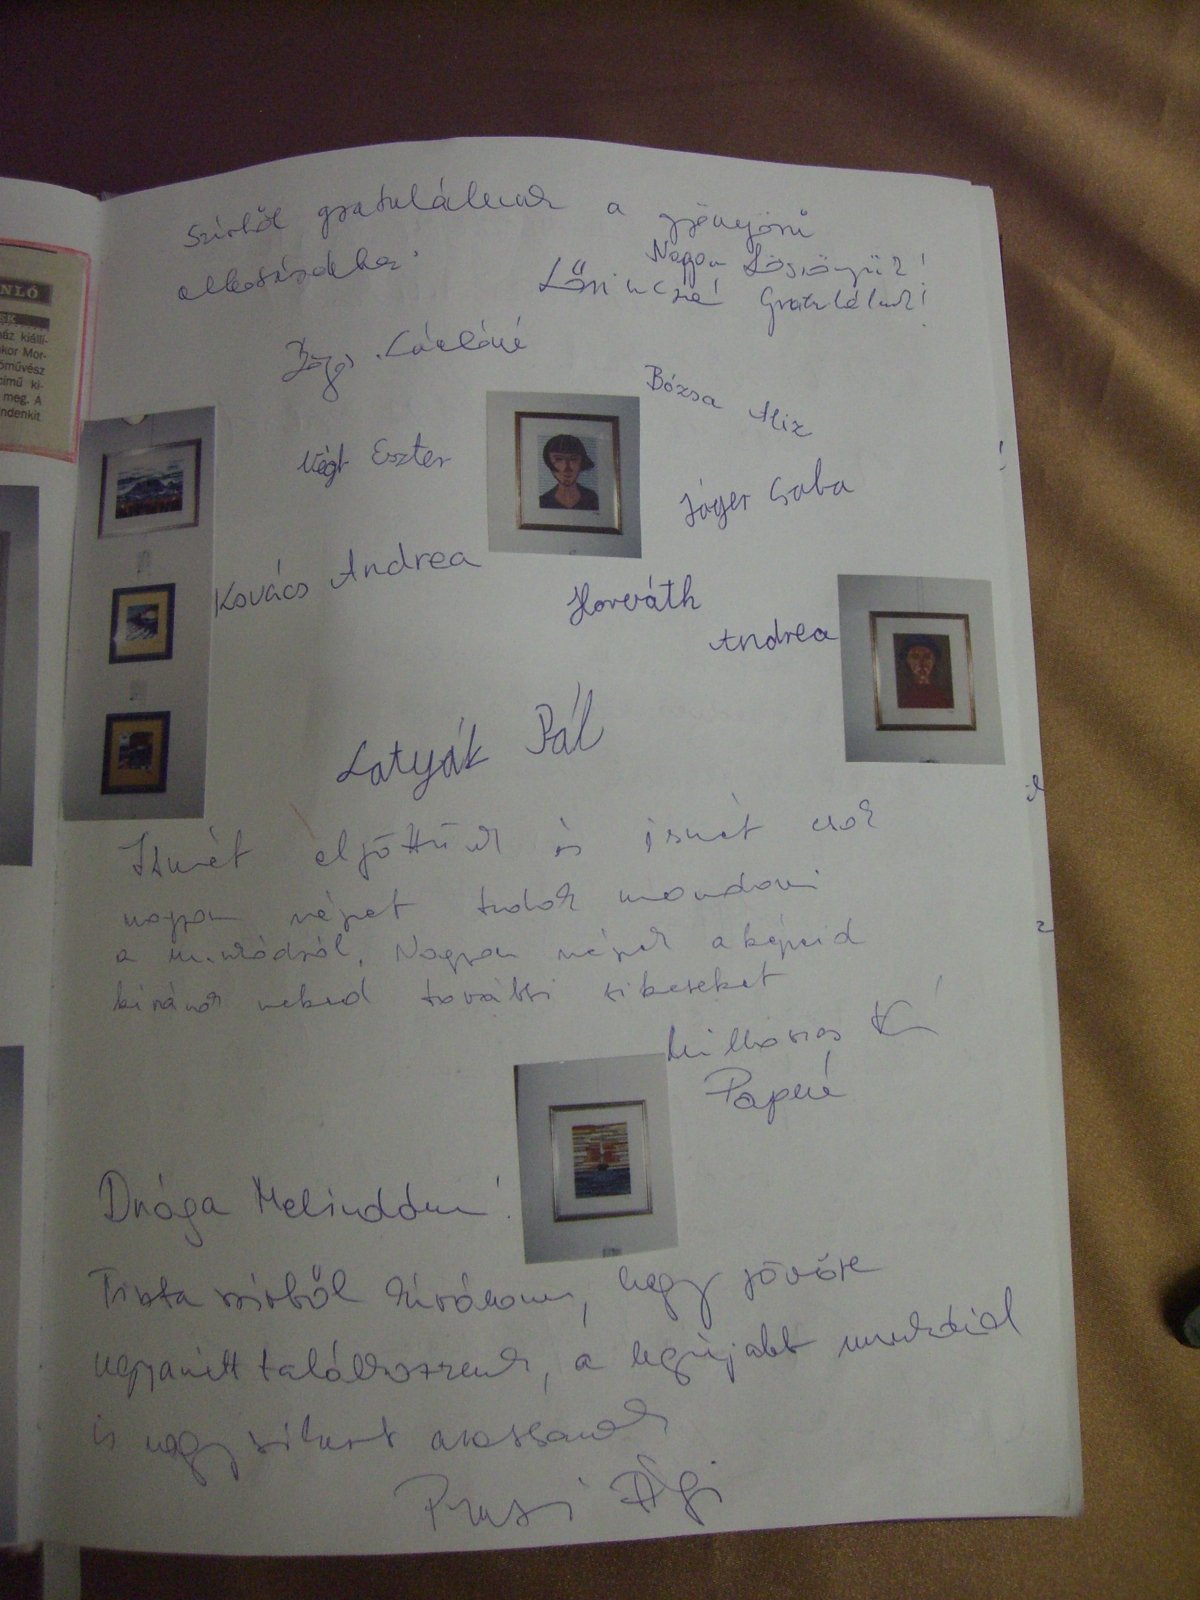 NLÓ
SK
ház kiállí-
kor Mor-
őművész
című ki-
meg. A
indenkit
Szívből gratulálunk a gyönyörű
alkotásokhoz!
Nagyon köszönjük!
Lőrinczné Gratulálunk!
Lászlóné
Bózsa Aliz
Végh Eszter
Jáger Csaba
Kovács Andrea
Horváth
Andrea
Latyák Pál
Ismét eljöttünk és ismét csak
nagyon szépet tudok mondani
a munkádról. Nagyon szépek a képeid
kívánok neked további sikereket
Papné
Drága Melindám!
Tiszta szívből kívánom, hogy jövőre
ugyanitt találkozzunk, a legújabb munkáid
is nagy sikert arassanak
Ági